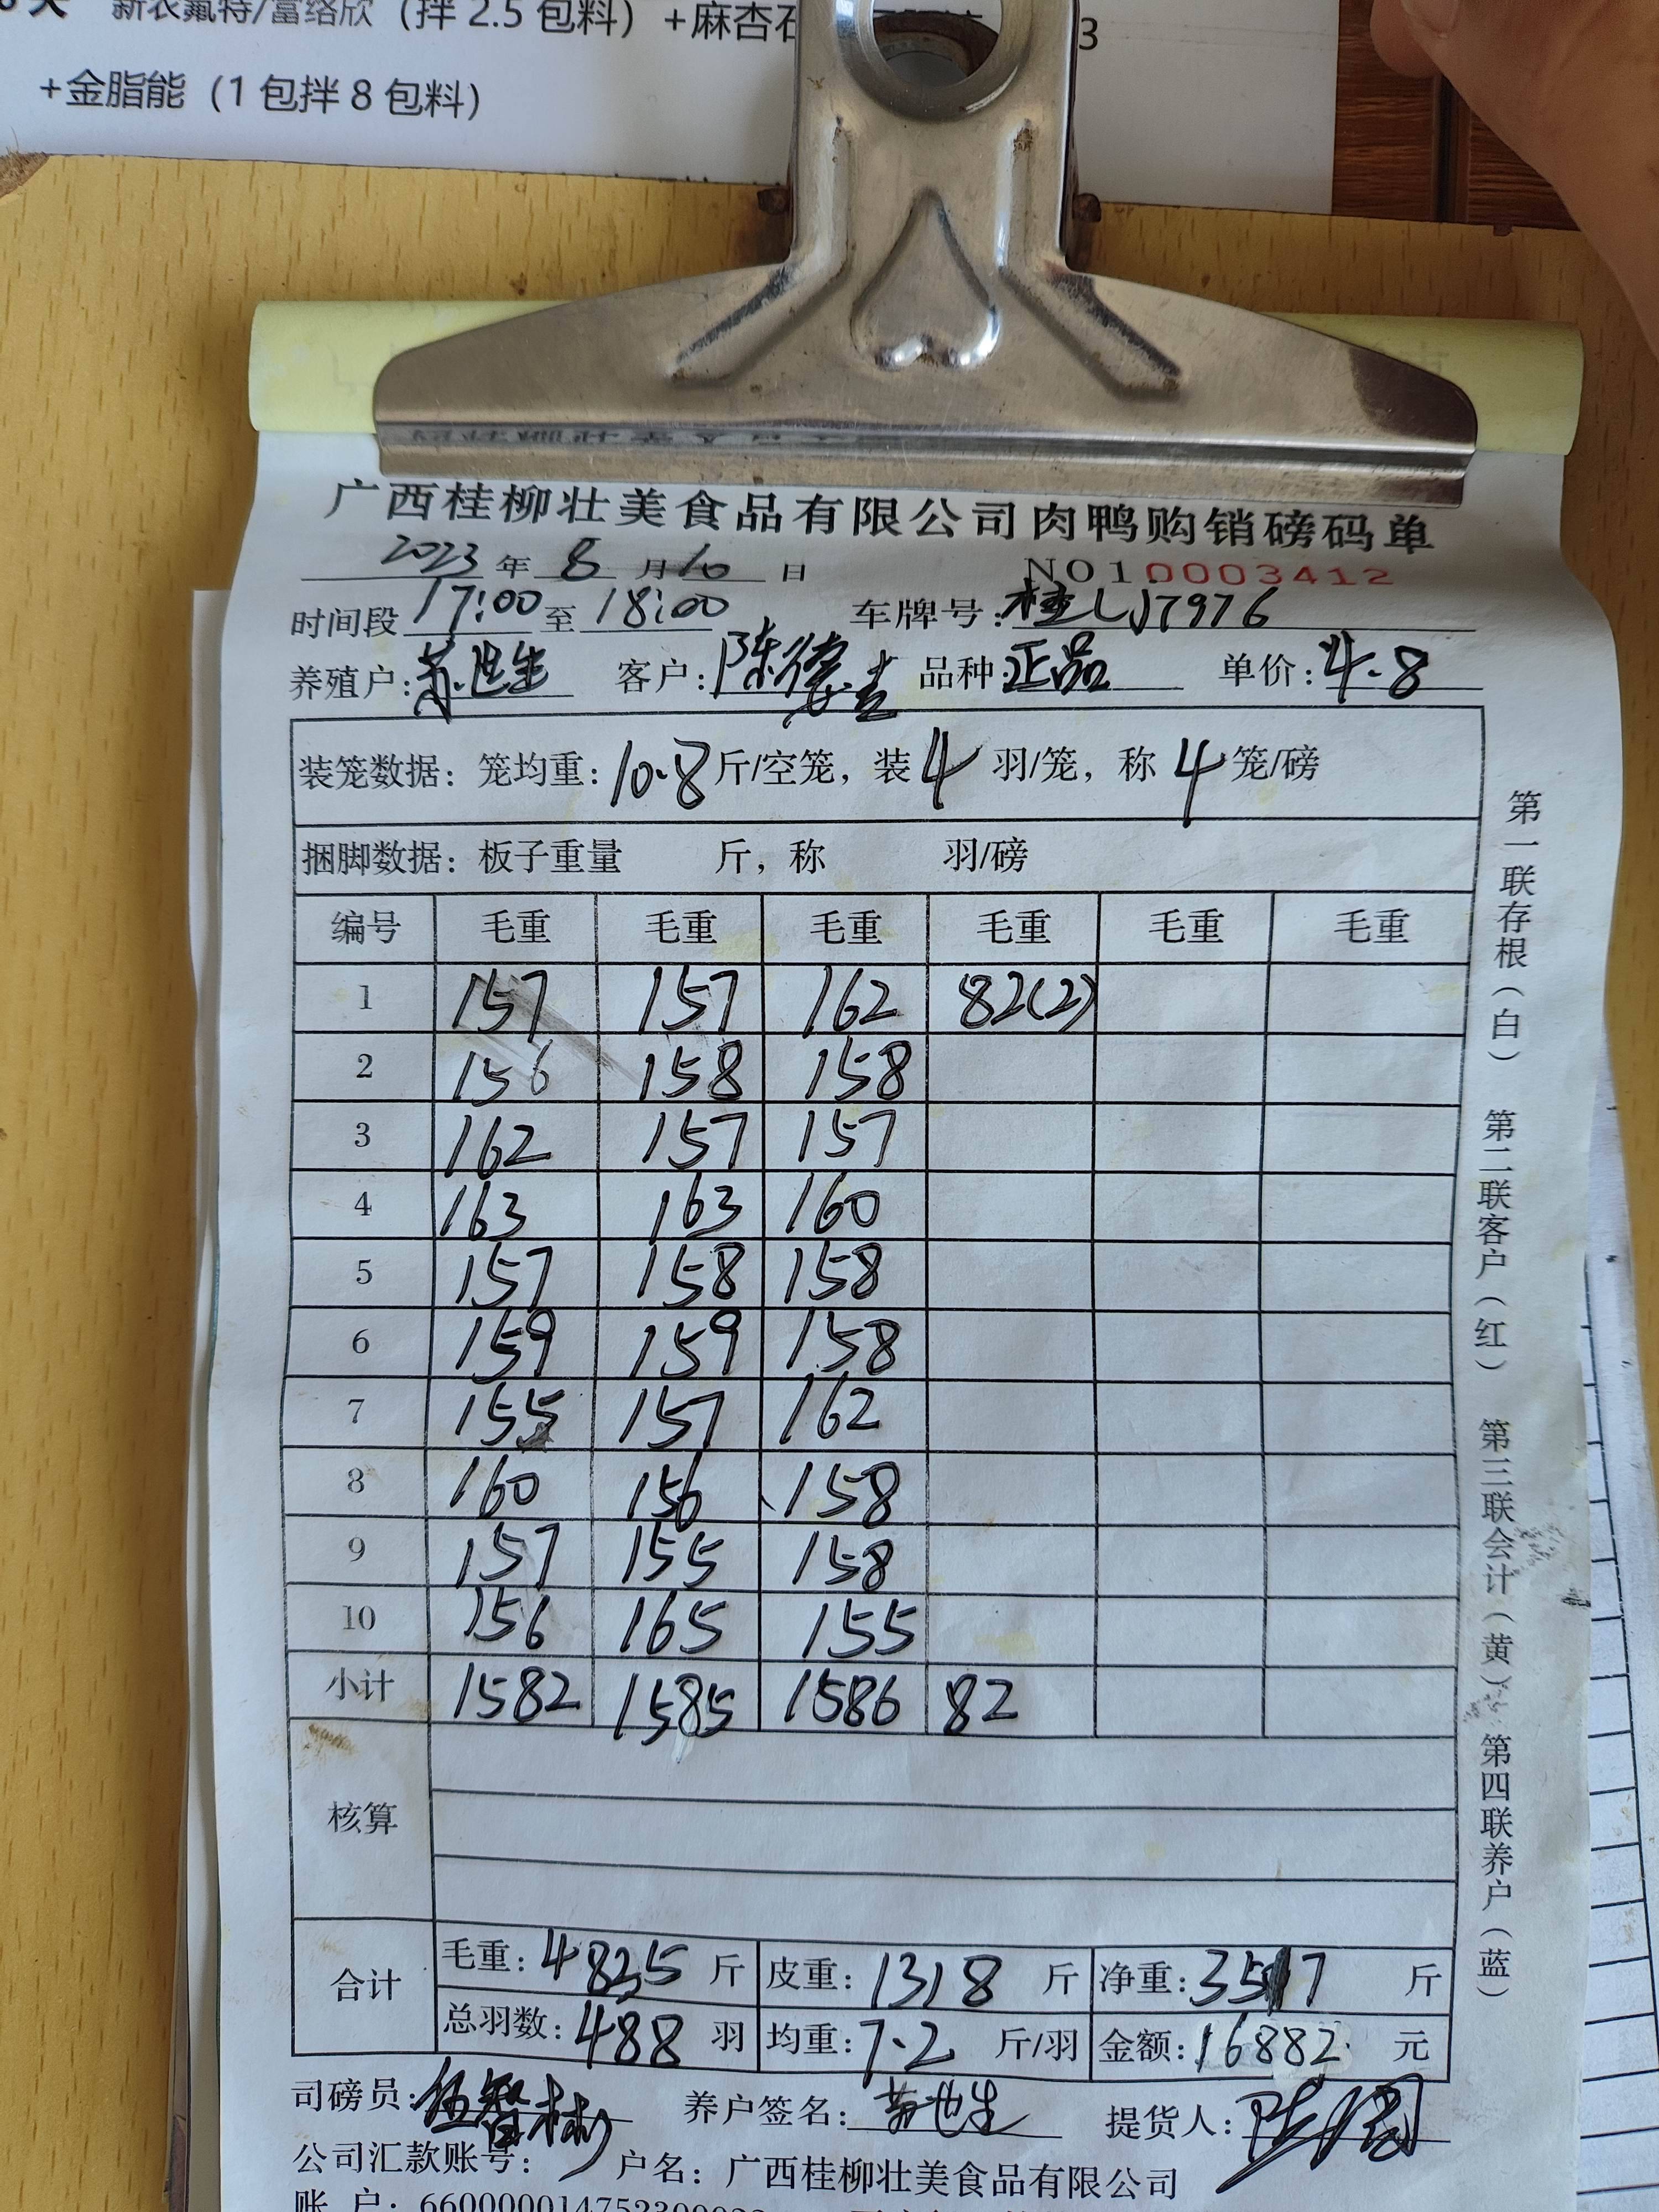 新衣氟特/富络欣（拌 2.5 包料）+麻杏石
3
+金脂能（1 包拌 8 包料）
广西桂柳壮美食品有限公司肉鸭购销磅码单
2023 年 8 月 10 日 NO10003412
时间段 17:00 至 18:00 车牌号：桂LJ7976
养殖户：苏世生 客户：陈德 品种：正品 单价：4.8
装笼数据：笼均重：10.8 斤/空笼，装 4 羽/笼，称 4 笼/磅
捆脚数据：板子重量 斤，称 羽/磅
编号 毛重 毛重 毛重 毛重 毛重 毛重
1 157 157 162 82(2)
2 156 158 158
3 162 157 157
4 163 163 160
5 157 158 158
6 159 159 158
7 155 157 162
8 160 156 158
9 157 155 158
10 156 165 155
小计 1582 1585 1586 82
核算
合计
毛重：4835 斤 皮重：1318 斤 净重：3517 斤
总羽数：488 羽 均重：7.2 斤/羽 金额：16882 元
司磅员：伍智彬 养户签名：苏世生 提货人：
公司汇款账号： 户名：广西桂柳壮美食品有限公司
账 户：
第一联存根（白） 第二联客户（红） 第三联会计（黄） 第四联养户（蓝）